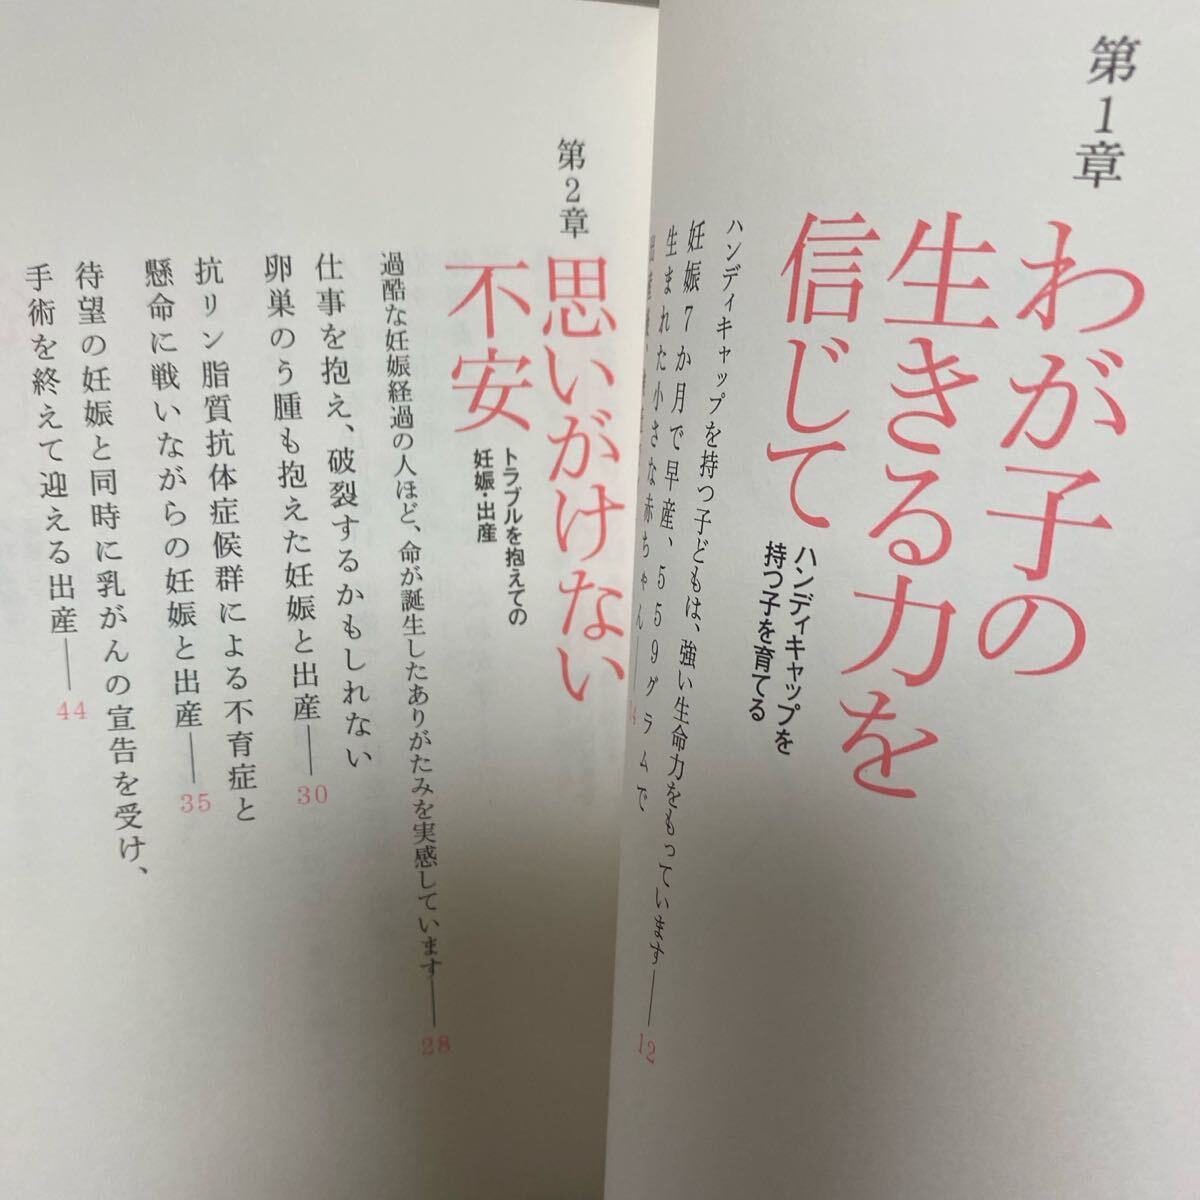 第1章
わが子の
生きる力を
信じて
ハンディキャップを
持つ子を育てる
ハンディキャップを持つ子どもは、強い生命力をもっています――12
妊娠7か月で早産、559グラムで
生まれた小さな赤ちゃん――14
第2章
思いがけない
不安
トラブルを抱えての
妊娠・出産
過酷な妊娠経過の人ほど、命が誕生したありがたみを実感しています――28
仕事を抱え、破裂するかもしれない
卵巣のう腫も抱えた妊娠と出産――30
抗リン脂質抗体症候群による不育症と
懸命に戦いながらの妊娠と出産――35
待望の妊娠と同時に乳がんの宣告を受け、
手術を終えて迎える出産――44